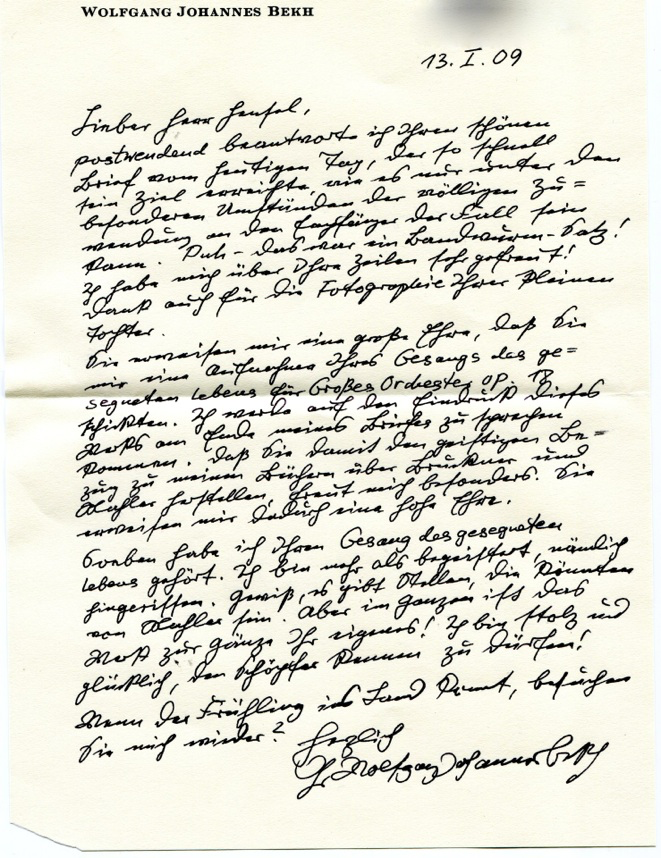 WOLFGANG JOHANNES BEKH
13. I. 09
Lieber Herr Hensel,
postwendend beantworte ich Ihren schönen
Brief vom heutigen Tag, der so schnell
sein Ziel erreichte, wie es nur unter den
besonderen Umständen der völligen Zu=
wendung an den Empfänger der Fall sein
kann. Puh – das war ein Bandwurm-Satz!
Ich habe mich über Ihre Zeilen sehr gefreut!
Dank auch für die Fotographie Ihrer kleinen
Tochter.
Sie erweisen mir eine große Ehre, daß Sie
mir eine Aufnahme Ihres Gesangs des ge=
segneten Lebens für Großes Orchester op. 18
schickten. Ich werde auf den Eindruck dieses
Werks am Ende meines Briefes zu sprechen
kommen. Daß Sie damit den geistigen Be=
zug zu meinen Büchern über Bruckner und
Mahler herstellen, freut mich besonders. Sie
erweisen mir dadurch eine hohe Ehre.
Soeben habe ich Ihren Gesang des gesegneten
Lebens gehört. Ich bin mehr als begeistert, nämlich
hingerissen. Gewiß, es gibt Stellen, die könnten
von Mahler sein. Aber im ganzen ist das
Werk zur Gänze Ihr eigenes! Ich bin stolz und
glücklich, den Schöpfer kennen zu dürfen!
Wenn der Frühling ins Land kommt, besuchen
Sie mich wieder? Herzlich
Ihr Wolfgang Johannes Bekh